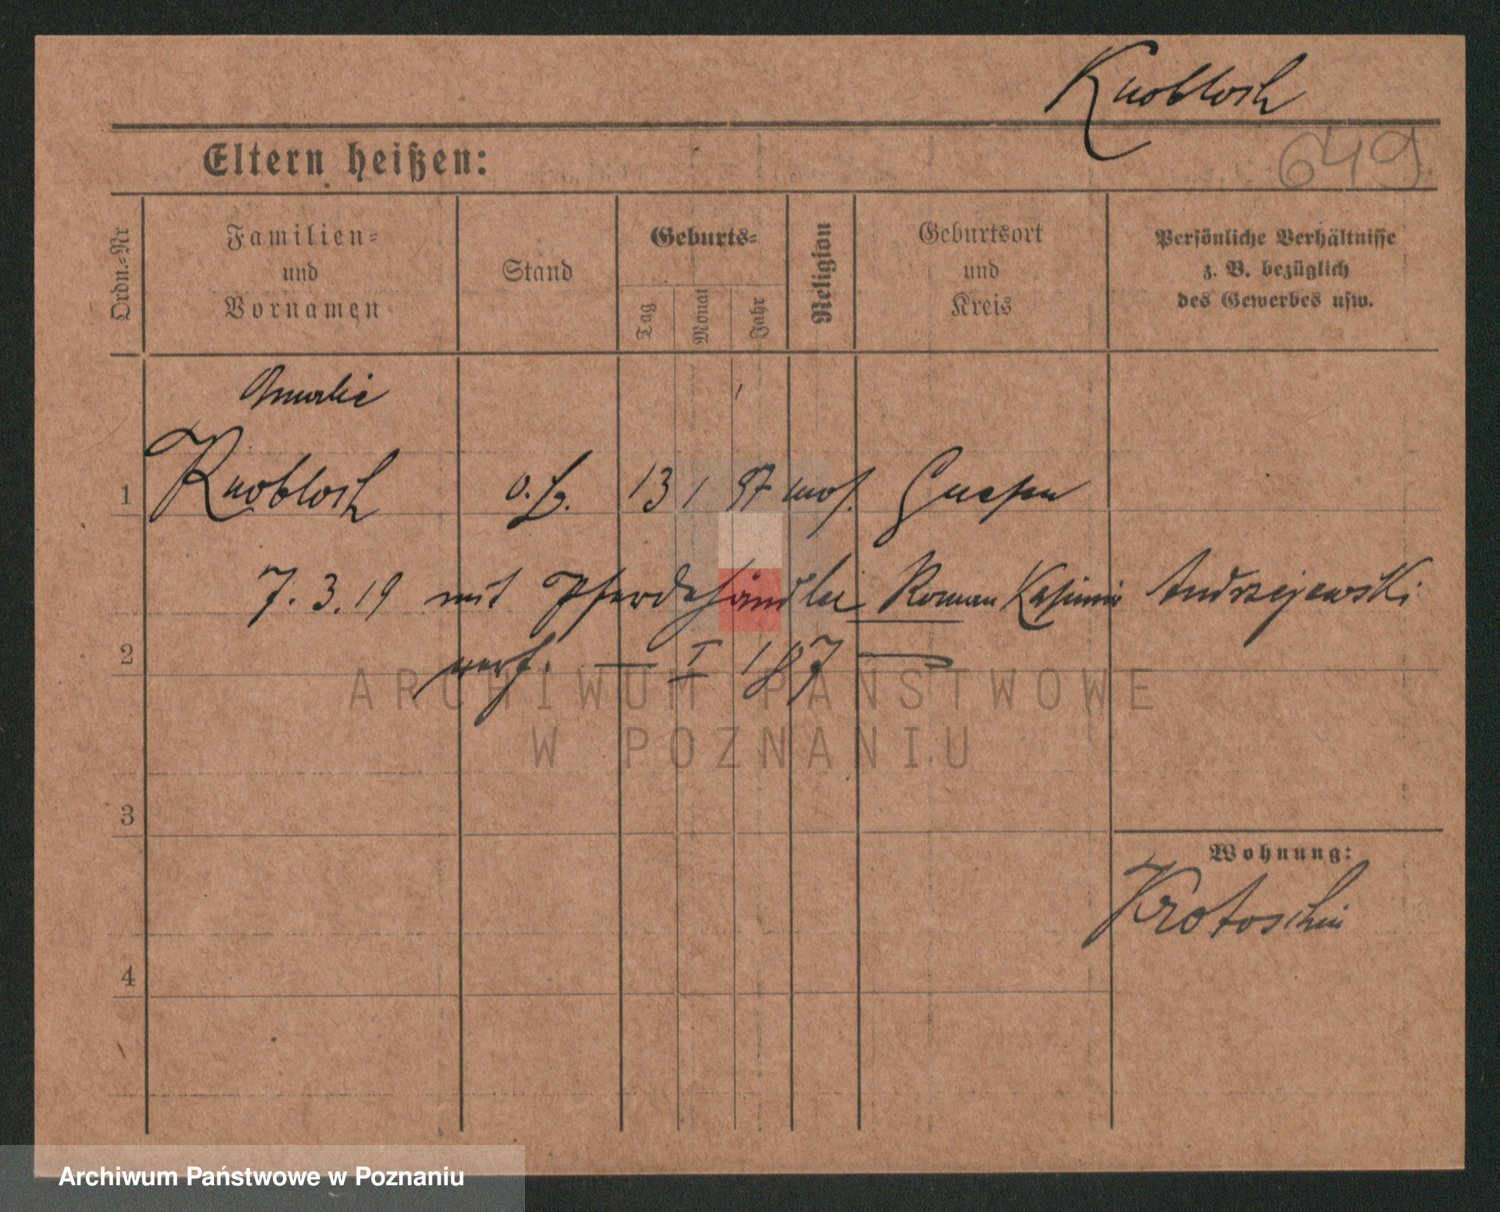 Knobloch
649
Eltern heißen:
Ordn.-Nr
Familien-
und
Vornamen
Stand
Geburts-
Tag
Monat
Jahr
Religion
Geburtsort
und
Kreis
Persönliche Verhältnisse
z. B. bezüglich
des Gewerbes usw.
Amalie
1 Knobloch o. G. 13 1 97 mos. Gnesen
7. 3. 19 mit Pferdehändler Roman Kasimir Andrzejewski
2 verh. — I 187
ARCHIWUM PAŃSTWOWE
W POZNANIU
3
Wohnung:
Krotoschin
4
Archiwum Państwowe w Poznaniu